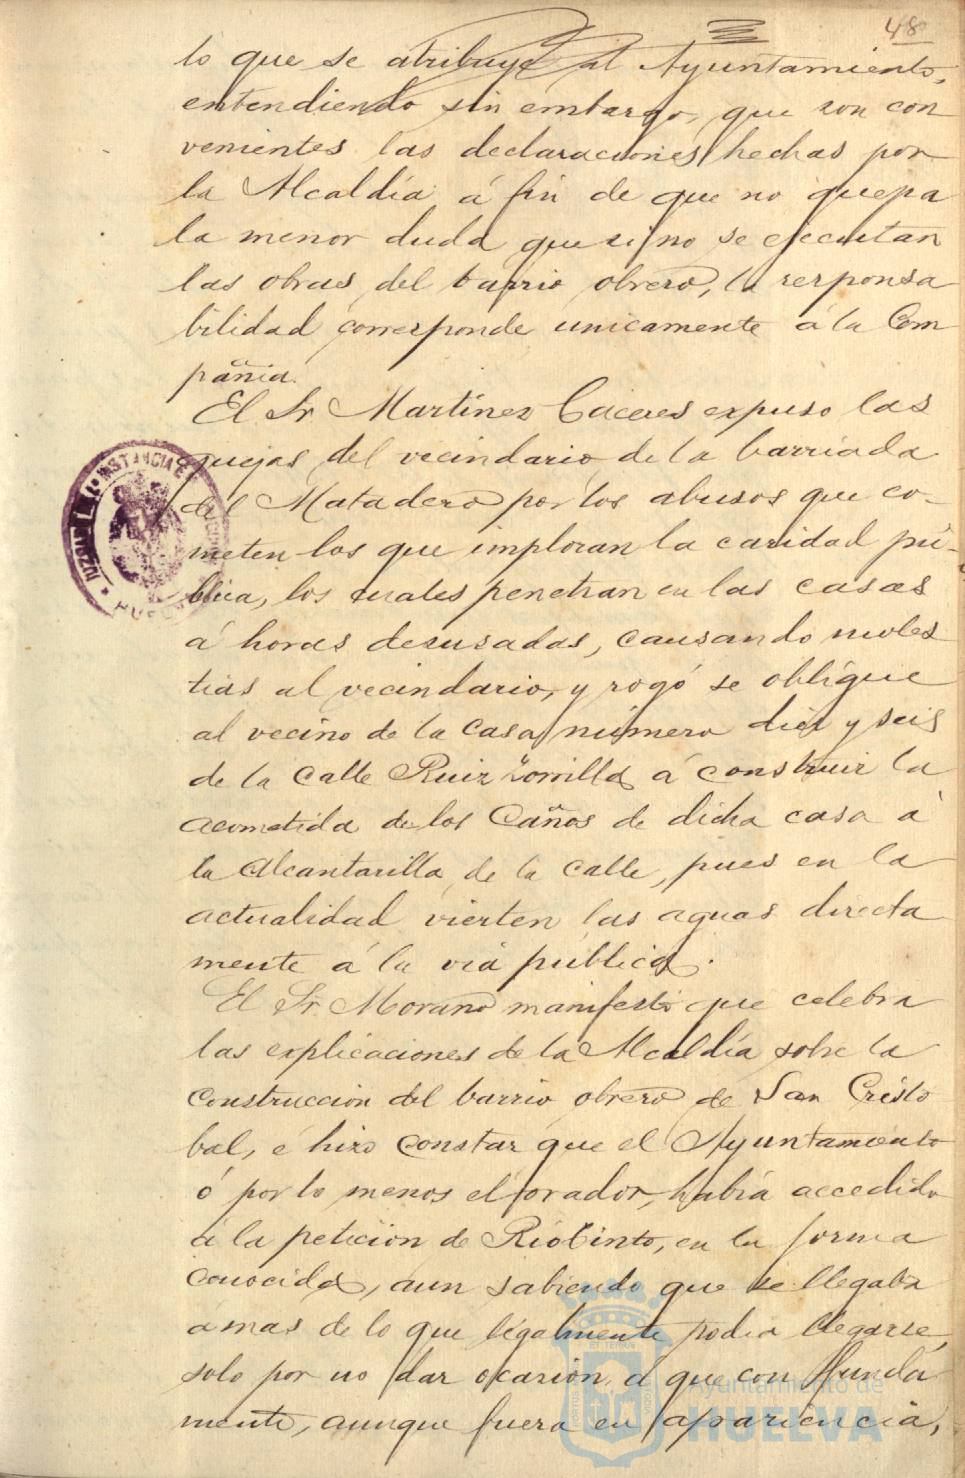 48
lo que se atribuye al Ayuntamiento,
entendiendo sin embargo, que son con
venientes las declaraciones hechas por
la Alcaldía á fin de que no quepa
la menor duda que si no se ejecutan
las obras del barrio obrero, la responsa
bilidad corresponde unicamente á la Com
pañia.
El Sr Martinez Caceres expuso las
quejas del vecindario de la barriada
del Matadero por los abusos que co-
meten los que imploran la caridad pú-
blica, los cuales penetran en las casas
á horas desusadas, causando moles
tias al vecindario, y rogó se obligue
al vecino de la casa número diez y seis
de la calle Ruiz Zorrilla á construir la
acometida de los Caños de dicha casa á
la Alcantarilla de la calle, pues en la
actualidad vierten las aguas directa
mente á la via pública.
El Sr. Morano manifestó que celebra
las explicaciones de la Alcaldía sobre la
construccion del barrio obrero de San Cristo
bal, é hizo constar que el Ayuntamiento
ó por lo menos el orador, habia accedido
á la petición de Riotinto, en la forma
conocida, aun sabiendo que se llegaba
á mas de lo que legalmente podia llegarse,
solo por no dar ocasión á que con funda
mento, aunque fuera en apariencia,
JUZGADO DE 1ª INSTANCIA E
HUELVA
Ayuntamiento de
HUELVA